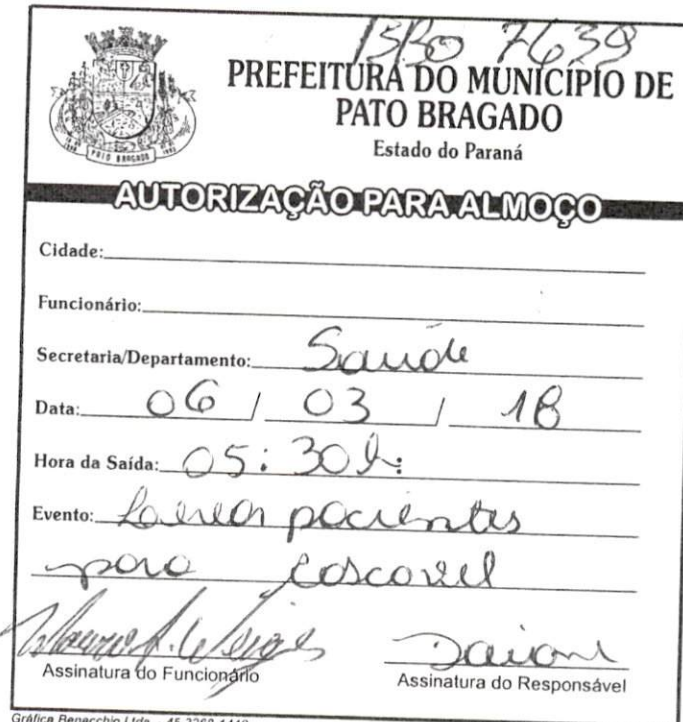 BBO 7639
PREFEITURA DO MUNICÍPIO DE
PATO BRAGADO
Estado do Paraná
PATO BRAGADO
AUTORIZAÇÃO PARA ALMOÇO
Cidade:
Funcionário:
Secretaria/Departamento: Saúde
Data: 06 / 03 / 18
Hora da Saída: 05:30h:
Evento: Levar pacientes
para Cascavel
Assinatura do Funcionário
Daiani
Assinatura do Responsável
Gráfica Benacchio Ltda